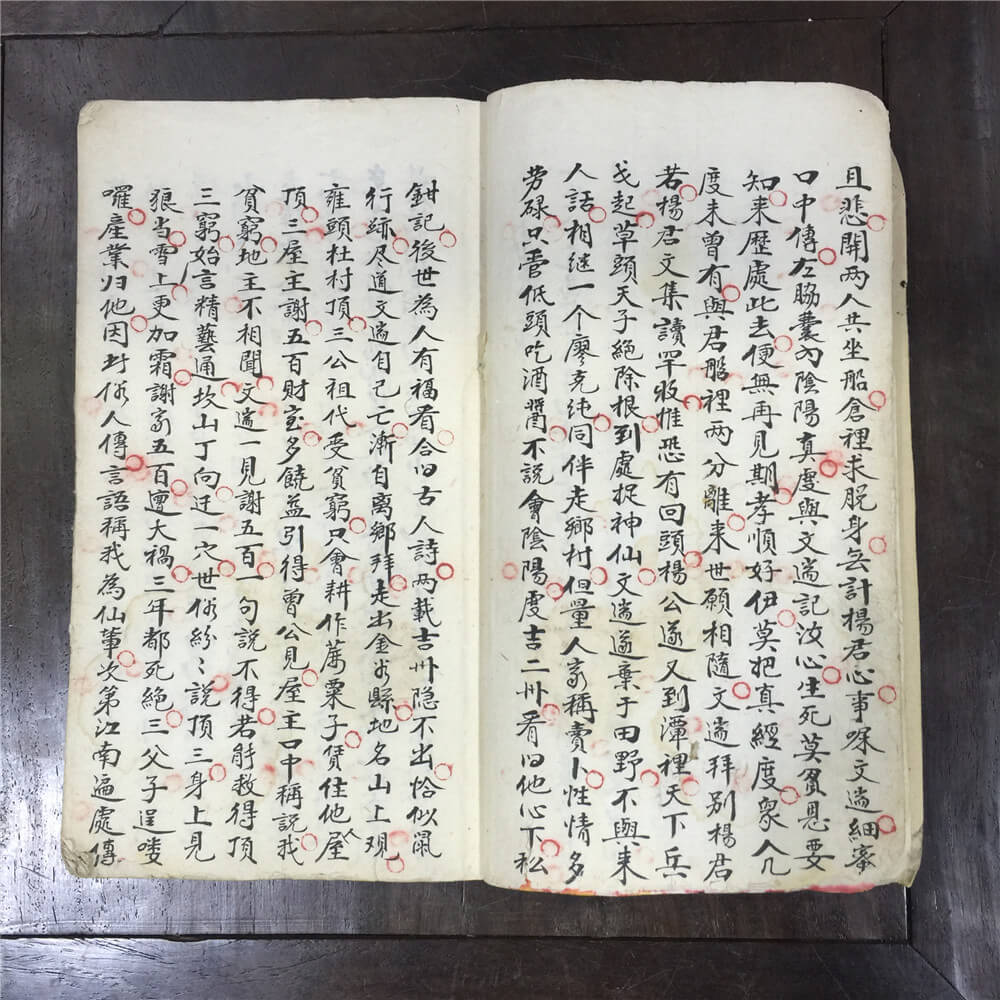 且悲開两人共坐船倉裡求脱身無計楊君心事啋文遄細宻
口中傳左脇囊内陰陽真度與文遄記汝心生死莫負恩要
知来歷處此去便無再見期孝順好伊莫把真經度衆人几
度未曾有與君船裡两分離来世願相隨文遄拜别楊君
若楊君文集讀罕收惟恐有回頭楊公遂又到潭裡天下兵
戈起草頭天子絕除根到處捉神仙文遄遂棄于田野不與来
人話相继一个廖克纯同伴走鄉村但量人家稱賣卜性情多
劳碌只管低頭吃酒醬不說會陰陽度吉二卅看旧他心下松
鉗記後世為人有福看合旧古人詩两載吉卅隐不出恰似鼠
行跡尽道文遄自己亡漸自離鄉拜走出金谷縣地名山上观
雍頭杜村頂三公祖代受貧窮只會耕作萬粟子赁住他屋
頂三屋主謝五百財宝多饒益引得曾公見屋主口中稱說我
貧窮地主不相聞文遄一見謝五百一句說不得若能救得頂
三窮始言精藝通坎山丁向迁一穴世俗紛〻說頂三身上見
狼当雪上更加霜謝家五百遭大禍三年都死絕三父子逞喽
囉産業归他因时俗人傳言語稱我為仙輩次第江南遍處傳